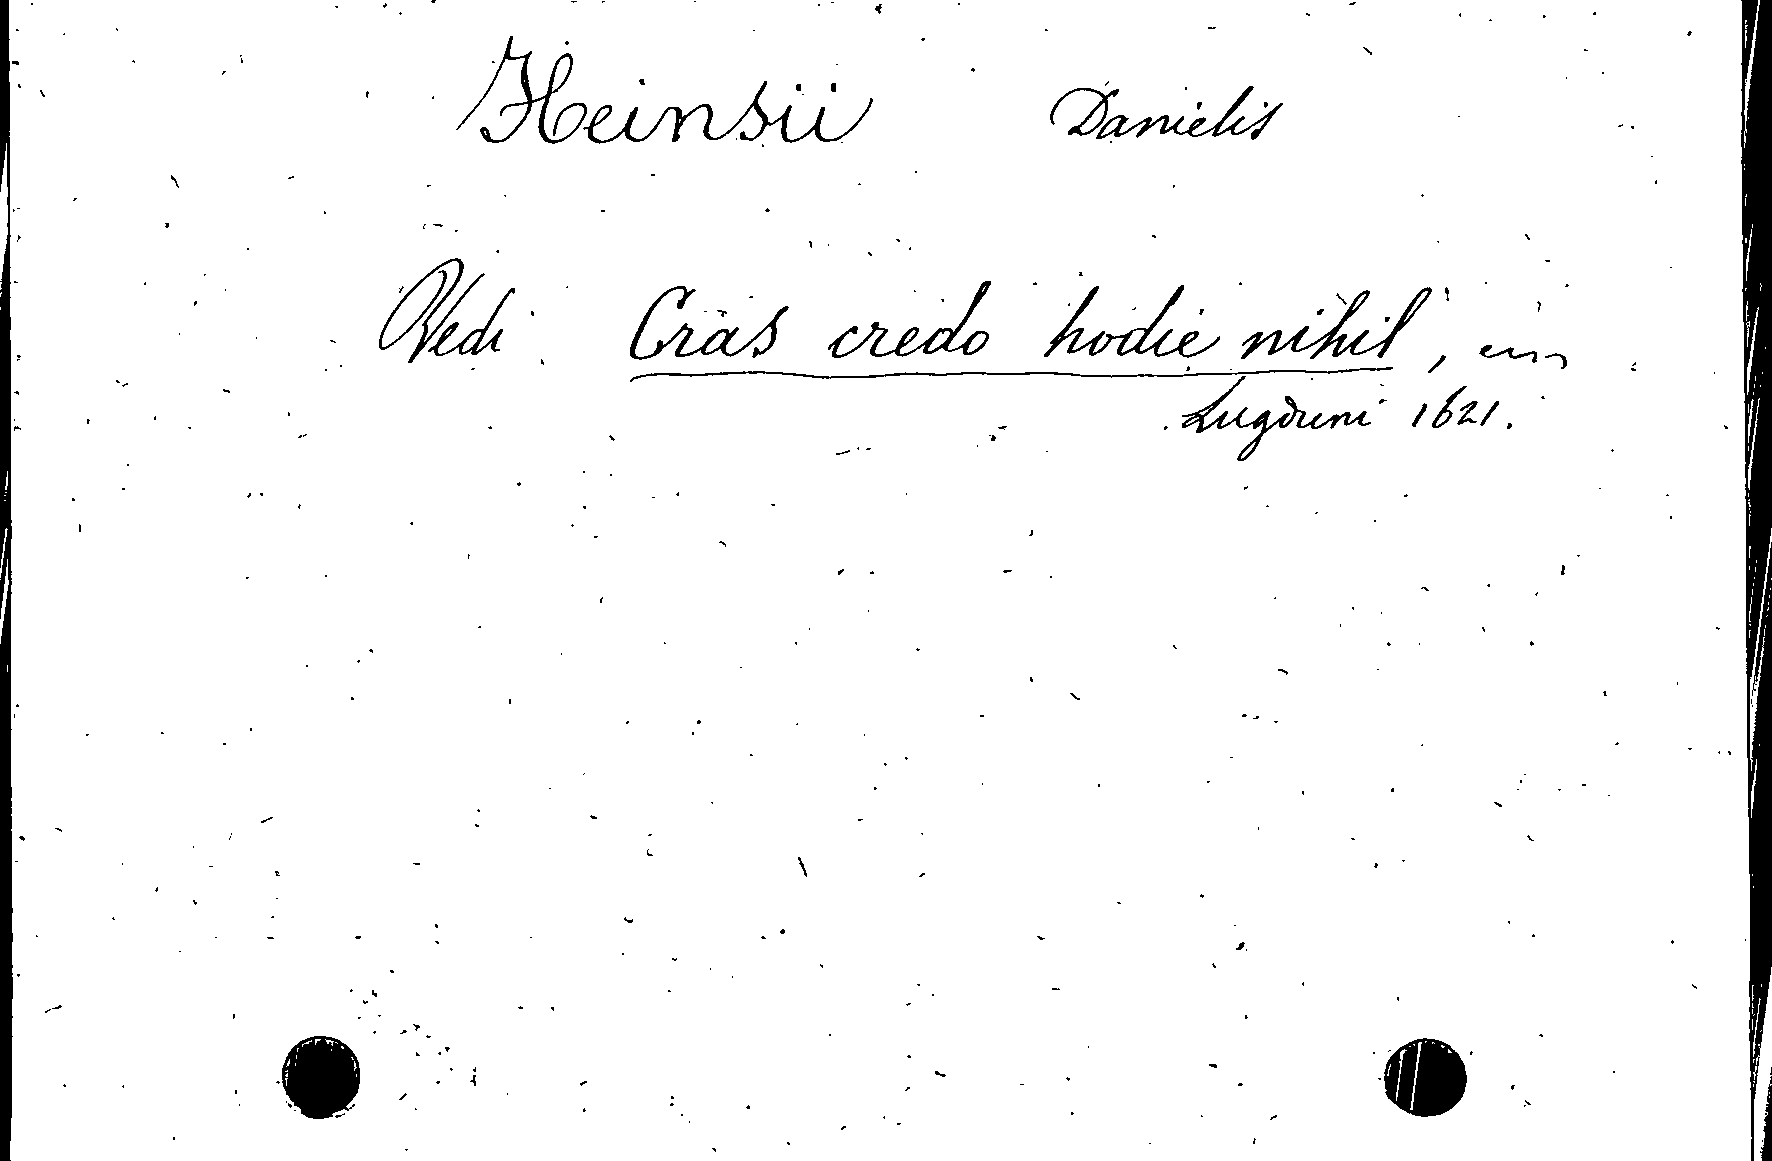 Heinsii Danielis
Vedi Cras credo hodie nihil,
Lugduni 1621.